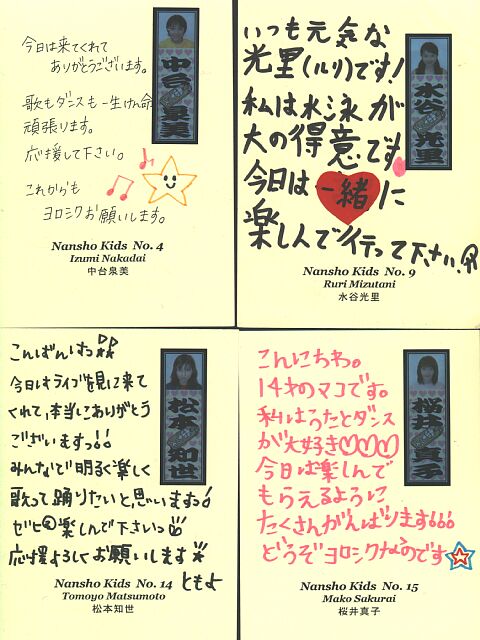 今日は来てくれて
ありがとうございます。
歌もダンスも一生けん命
頑張ります。
応援して下さい。
これからも
ヨロシクお願いします。
中台泉美
Nansho Kids No. 4
Izumi Nakadai
中台泉美
いつも元気な
光里(ルリ)です!
私は水泳が
大の得意です
今日は一緒に
楽しんで行って下さい。
水谷光里
Nansho Kids No. 9
Ruri Mizutani
水谷光里
こんばんはっ!!
今日はライブを見に来て
くれて、本当にありがとう
ございますっ!!
みんなで明るく楽しく
歌って踊りたいと思いますっ!
ぜひ楽しんで下さいっ
応援よろしくお願いします
ともよ
松本知世
Nansho Kids No. 14
Tomoyo Matsumoto
松本知世
こんにちわ。
14才のマコです。
私はうたとダンス
が大好き♡♡♡
今日は楽しんで
もらえるように
たくさんがんばります!!!
どうぞヨロシクなのです
桜井真子
Nansho Kids No. 15
Mako Sakurai
桜井真子